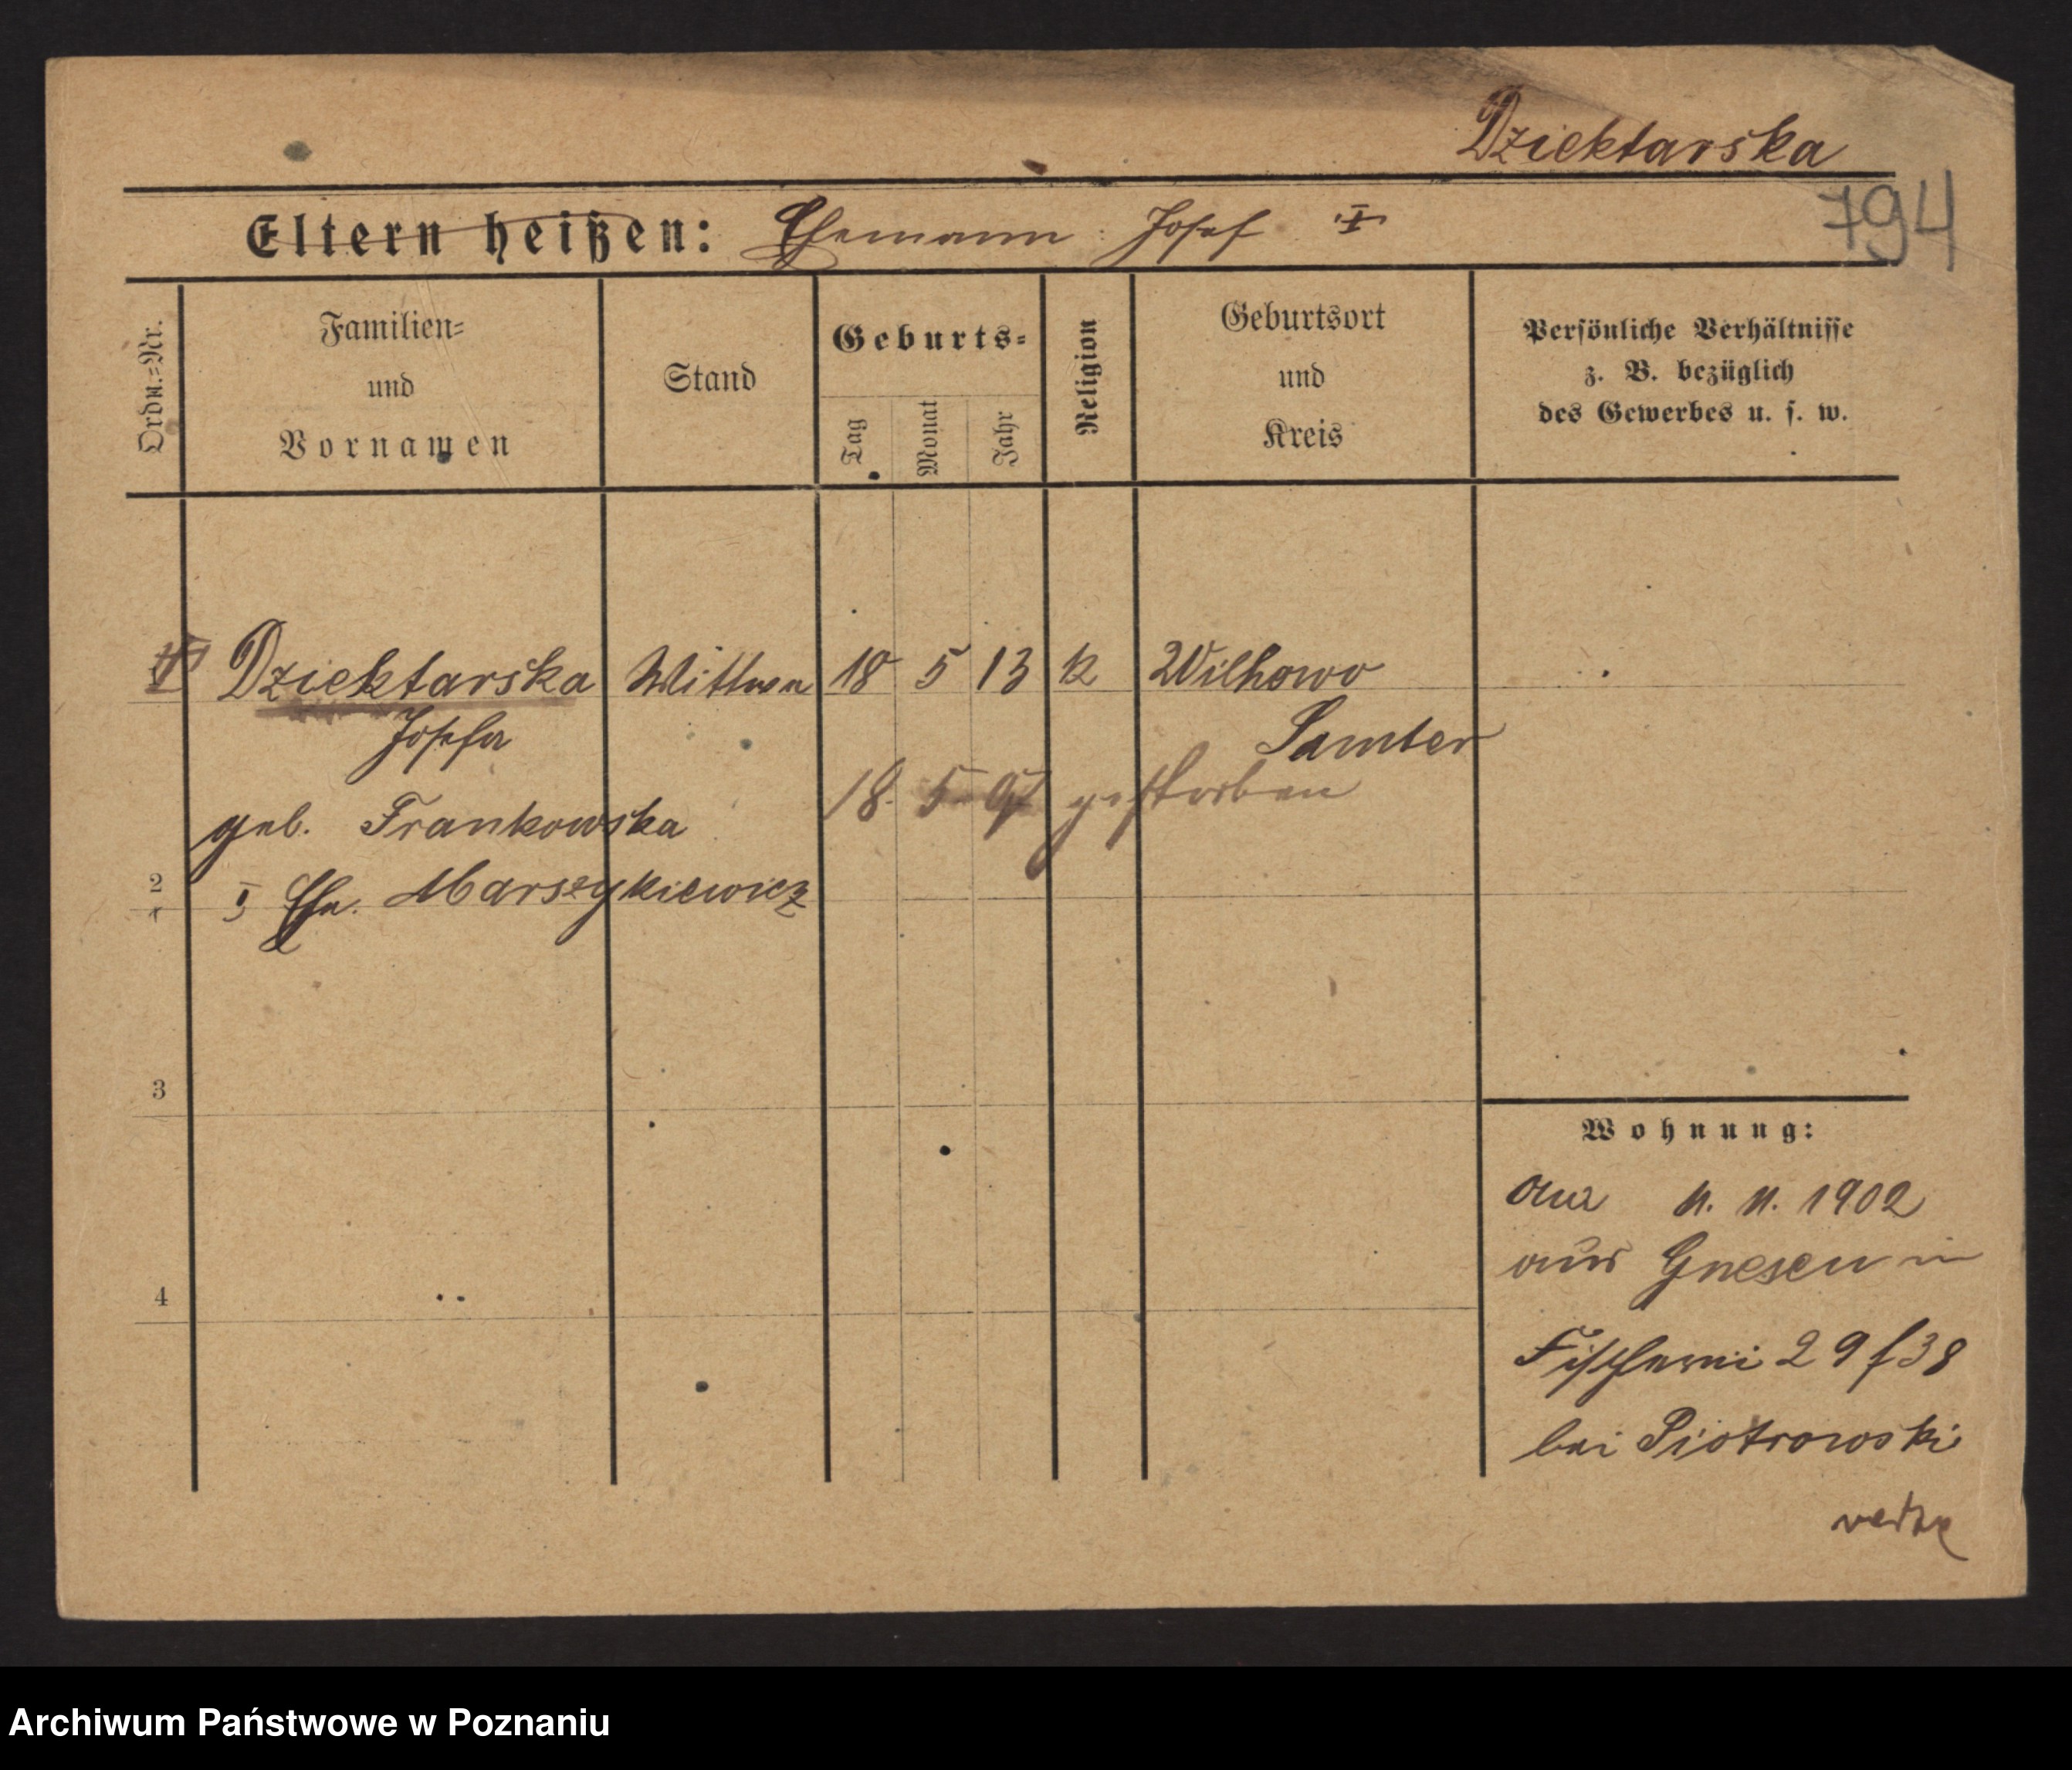 Dziektarska
794
Eltern heißen: Ehemann: Josef
Ordn.=Nr.
Familien=
und
Vornamen
Stand
Geburts=
Tag
Monat
Jahr
Religion
Geburtsort
und
Kreis
Persönliche Verhältnisse
z. B. bezüglich
des Gewerbes u. s. w.
Dziektarska Wittwe 18 5 13 k Wilkowo
Josefa Samter
18. 5 gestorben
geb. Frankowska
2
I Ehe. Marszykiewicz
3
4
Wohnung:
11. 11. 1902
aus Gnesen in
Fischerei 29/38
bei Piotrowski
Archiwum Państwowe w Poznaniu